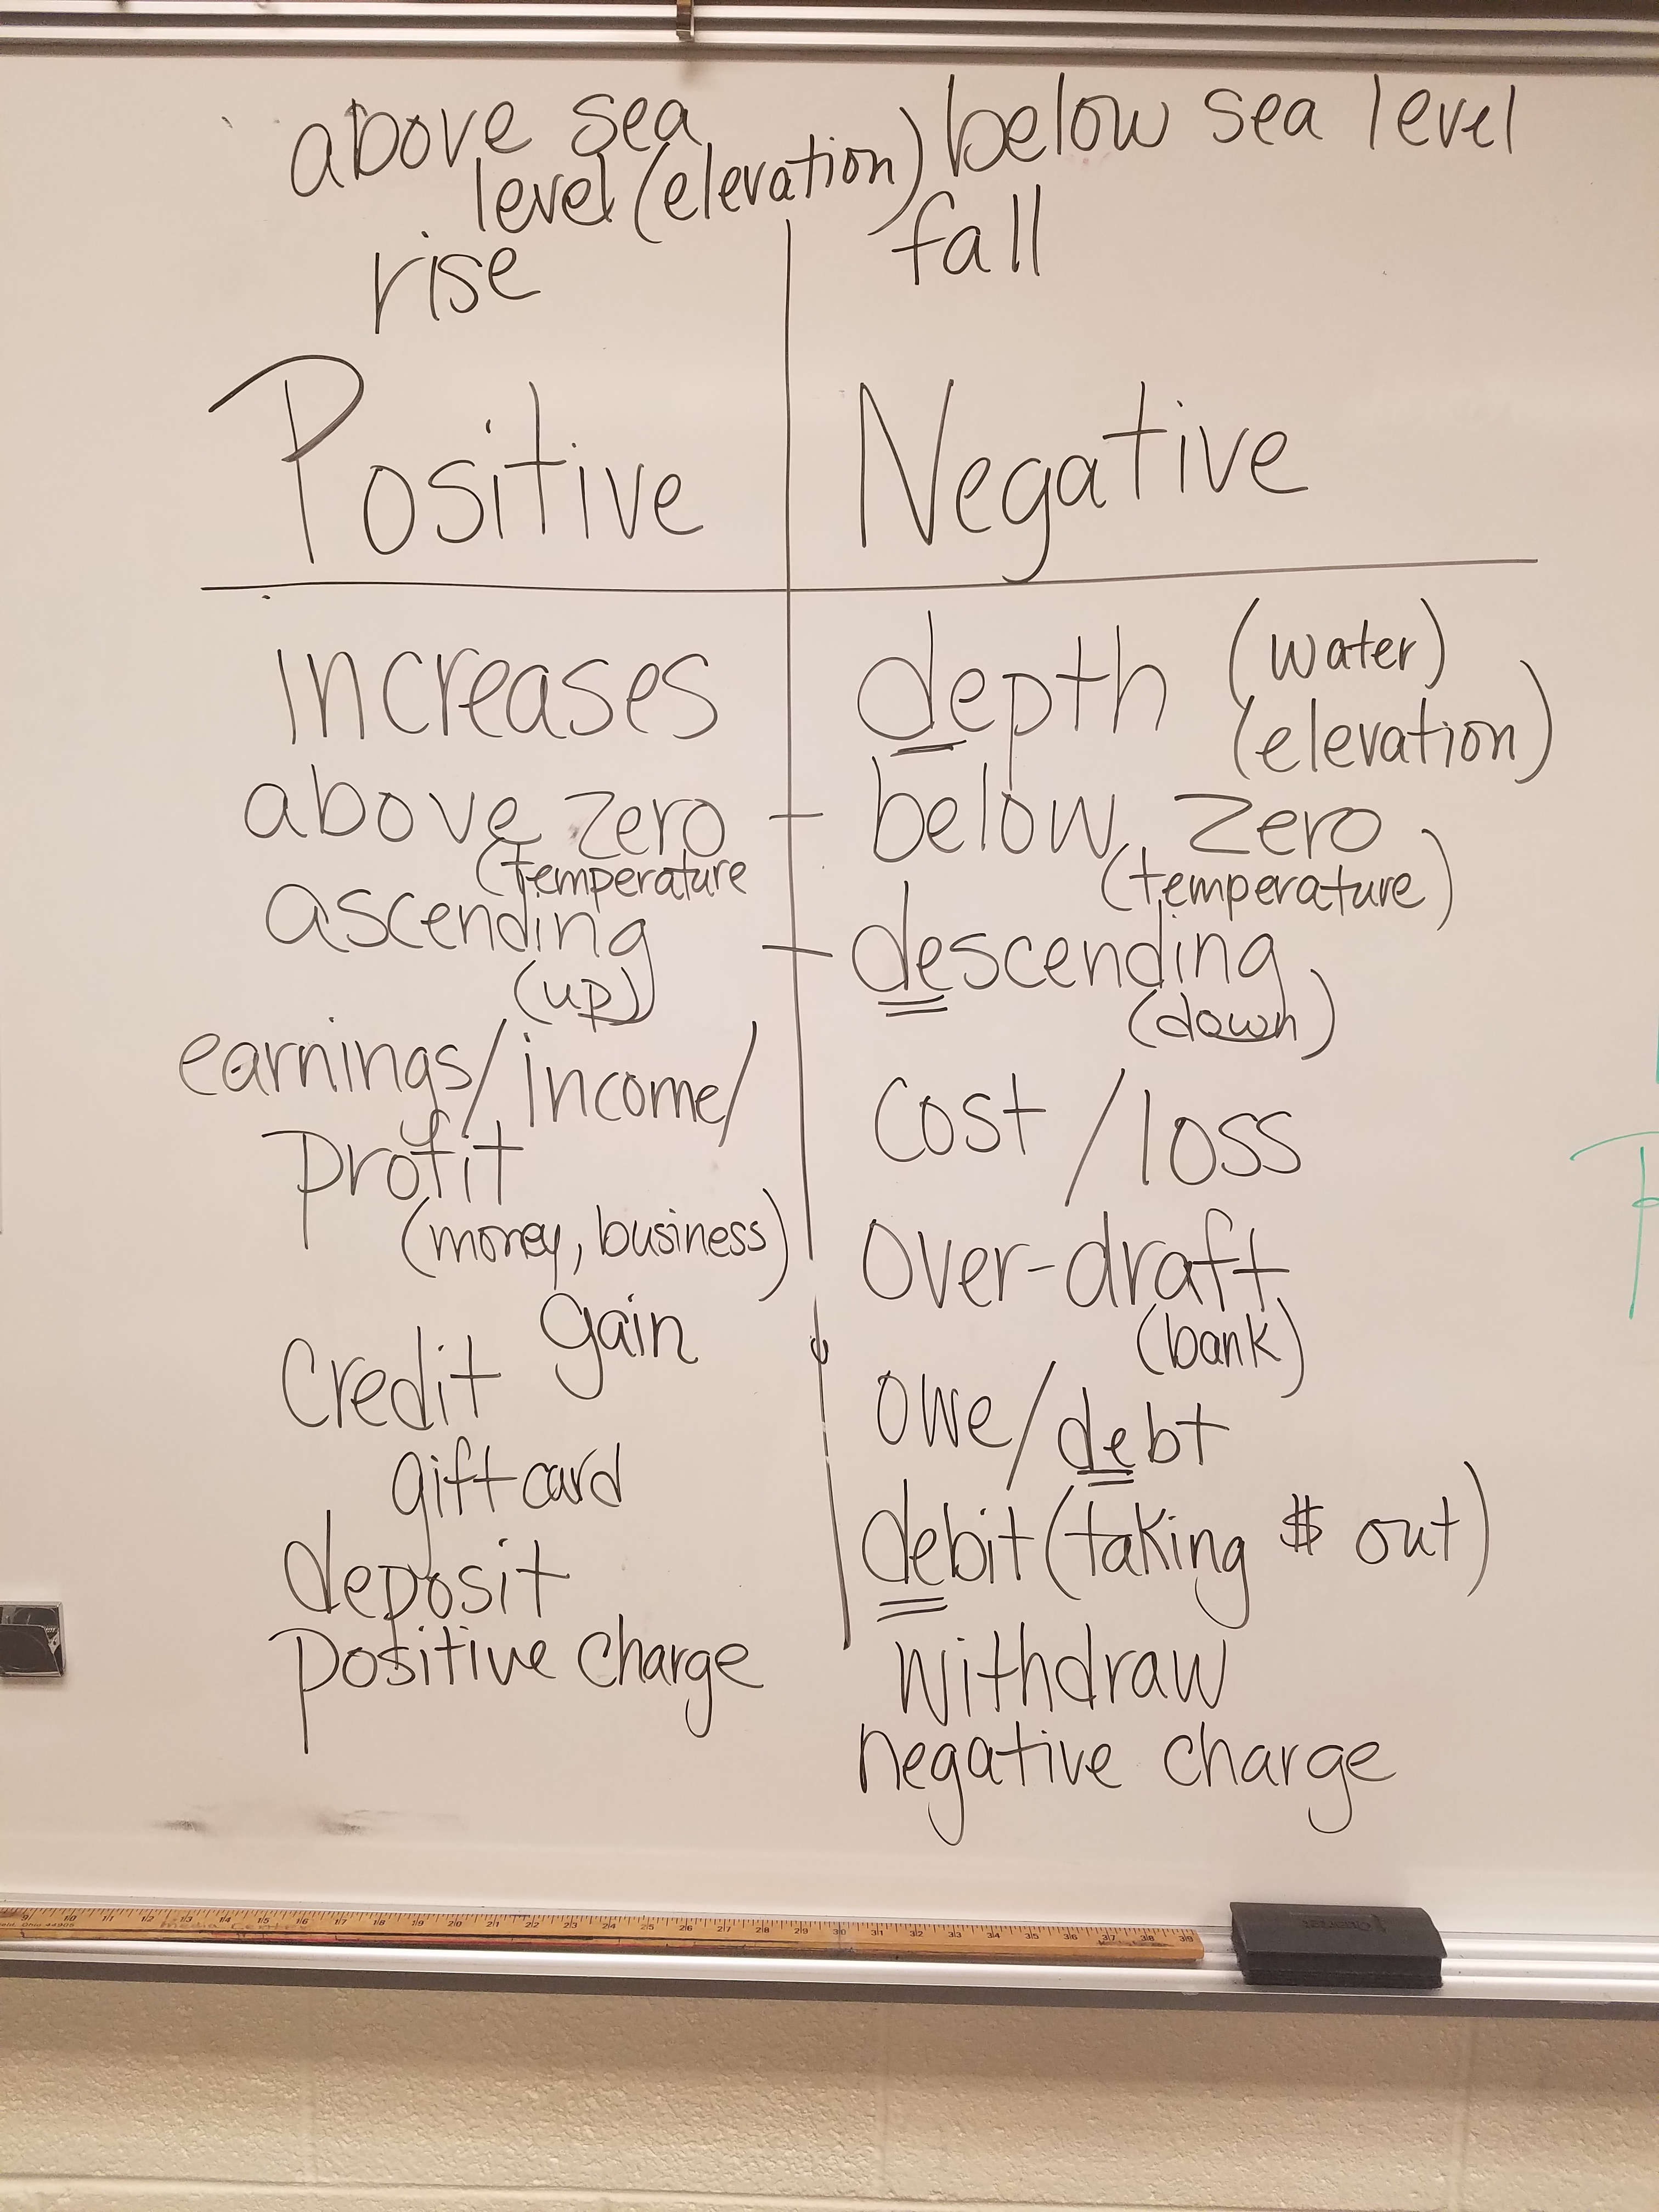 above sea
level (elevation)
rise
below sea level
fall
Positive
Negative
increases
above zero
(temperature
ascending
(up)
earnings/income/
profit
(money, business)
gain
credit
gift card
deposit
positive charge
depth (water)
(elevation)
below zero
(temperature)
descending
(down)
cost/loss
over-draft
(bank)
owe/debt
debit (taking $ out)
withdraw
negative charge
9 10 11 12 13 14 15 16 17 18 19 20 21 22 23 24 25 26 27 28 29 30 31 32 33 34 35 36 37 38 39